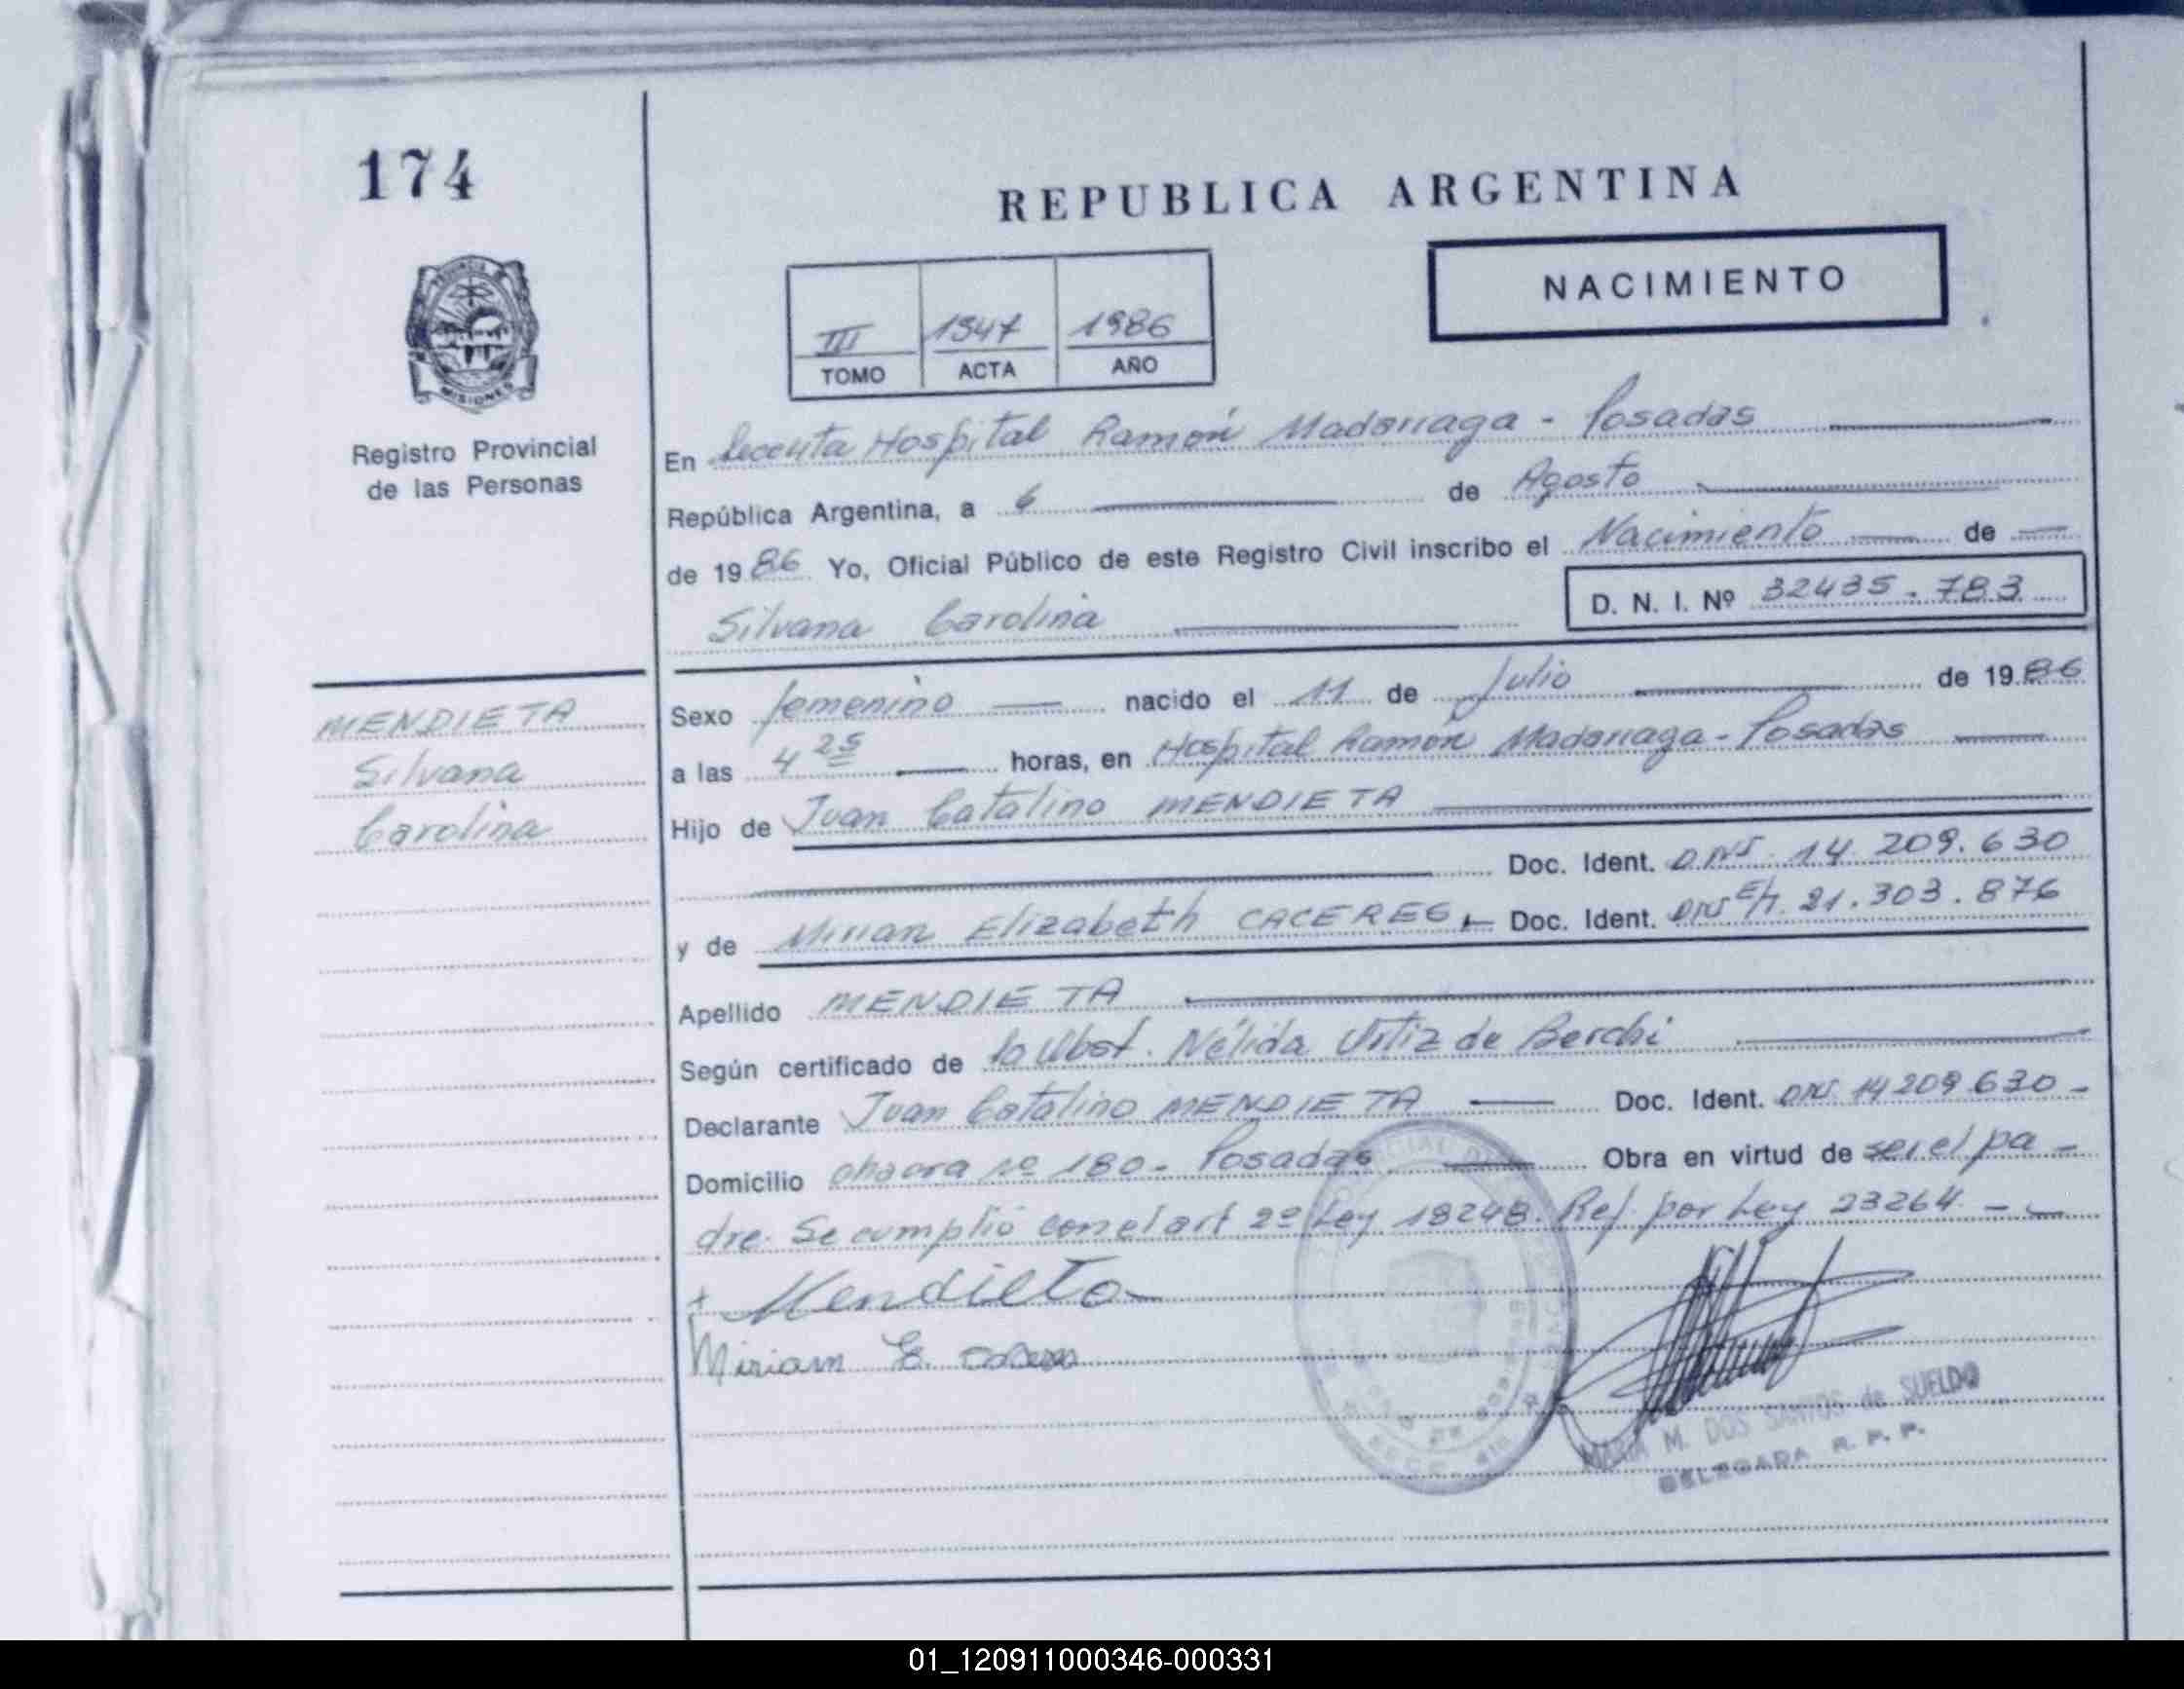 174
REPUBLICA ARGENTINA
NACIMIENTO
III 1347 1986
TOMO ACTA AÑO
PROVINCIA DE
MISIONES
Registro Provincial
de las Personas
En Hospital Ramón Madariaga - Posadas
República Argentina, a 6 de Agosto
de 1986 Yo, Oficial Público de este Registro Civil inscribo el Nacimiento de
Silvana Carolina
D. N. I. Nº 32435.783
MENDIETA
Silvana
Carolina
Sexo femenino nacido el 11 de Julio de 1986
a las 4 25 horas, en Hospital Ramón Madariaga - Posadas
Hijo de Juan Catalino MENDIETA
Doc. Ident. DNI 14.209.630
y de Mirian Elizabeth CACERES Doc. Ident. DNI E/t. 21.303.876
Apellido MENDIETA
Según certificado de la Obst. Nélida Ortiz de Berchi
Declarante Juan Catalino MENDIETA Doc. Ident. DNI 14209.630 -
Domicilio chacra Nº 180 - Posadas Obra en virtud de ser el pa -
dre. Se cumplió con el art 2º Ley 18248. Ref. por Ley 23264. -
+ Mendieta
Miriam E.
MARIA M. DOS SANTOS de SUELDO
DELEGADA R. P. P.
01_120911000346-000331